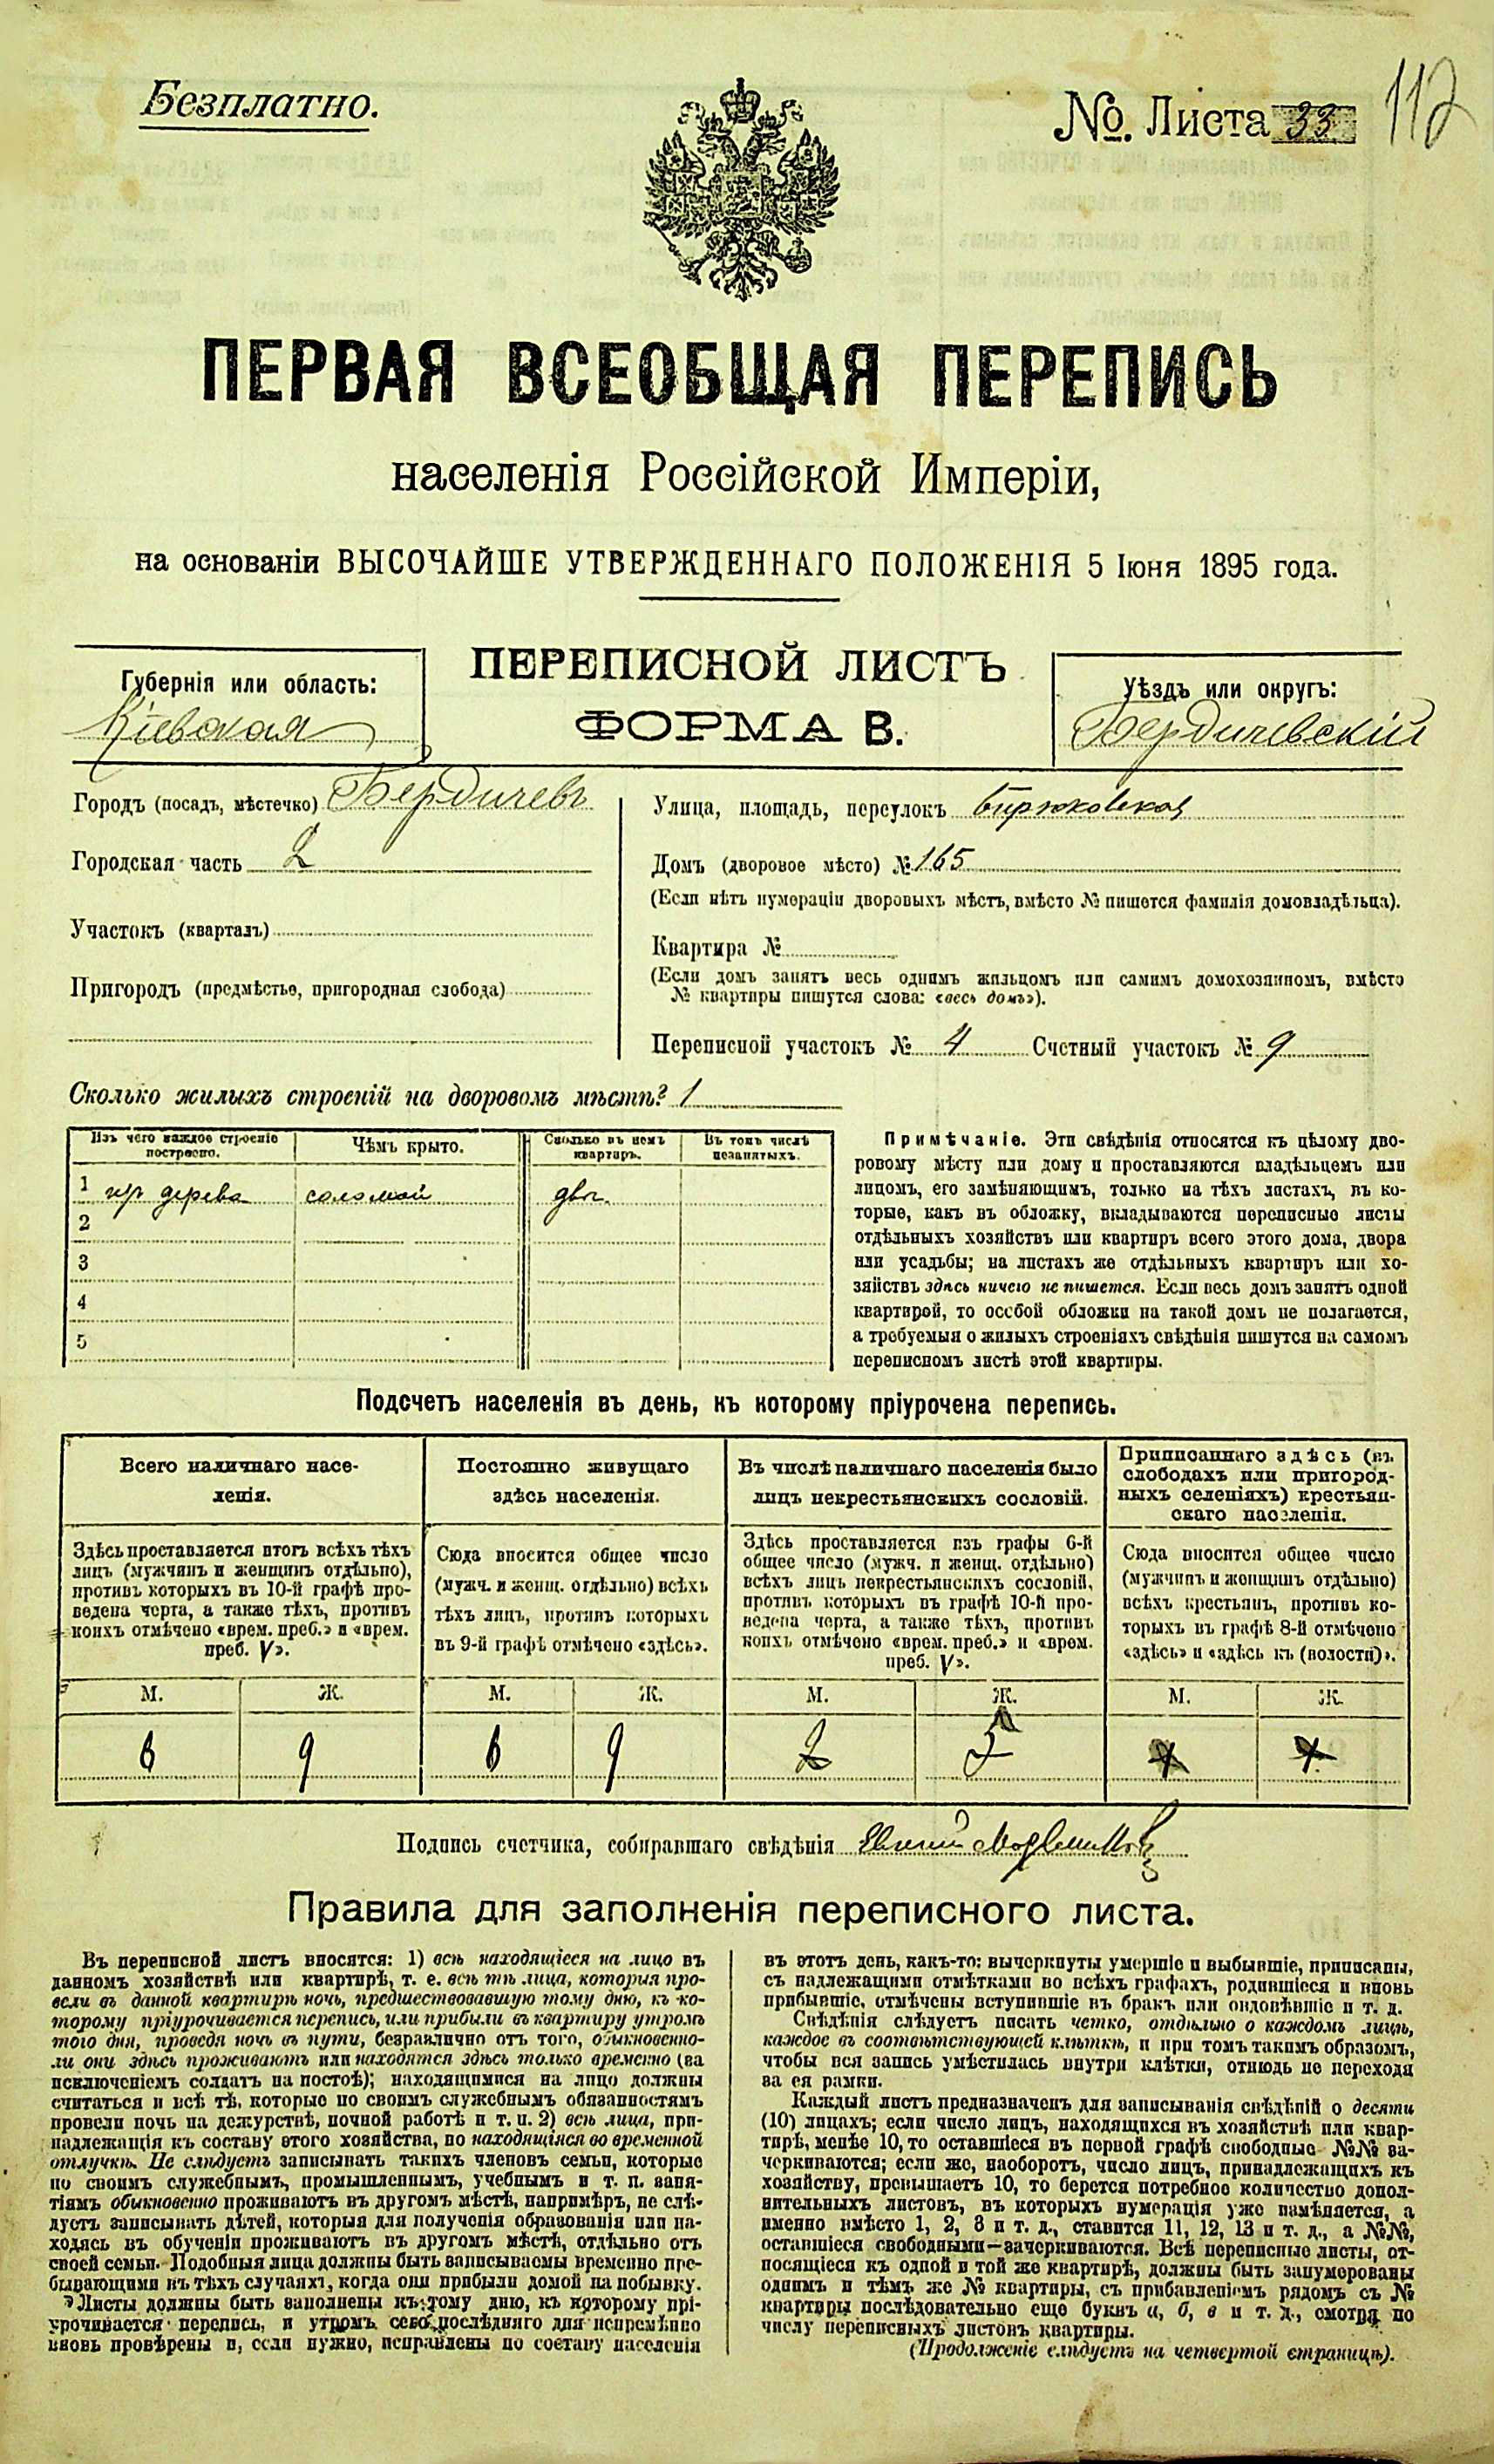 Безплатно.
№. Листа 33
112
ПЕРВАЯ ВСЕОБЩАЯ ПЕРЕПИСЬ
населенія Россійской Имперіи,
на основаніи ВЫСОЧАЙШЕ УТВЕРЖДЕННАГО ПОЛОЖЕНІЯ 5 Іюня 1895 года.
Губернія или область:
Кіевская
ПЕРЕПИСНОЙ ЛИСТЪ
ФОРМА В.
Уѣздъ или округъ:
Бердичевскій
Городъ (посадъ, мѣстечко) Бердичевъ
Городская часть 2
Участокъ (кварталъ)
Пригородъ (предмѣстье, пригородная слобода)
Улица, площадь, переулокъ Бирюковская
Домъ (дворовое мѣсто) № 165
(Если нѣтъ нумераціи дворовыхъ мѣстъ, вмѣсто № пишется фамилія домовладѣльца).
Квартира №
(Если домъ занятъ весь однимъ жильцомъ или самимъ домохозяиномъ, вмѣсто
№ квартиры пишутся слова: «весь домъ»).
Переписной участокъ № 4 Счетный участокъ № 9
Сколько жилыхъ строеній на дворовомъ мѣстѣ? 1
Изъ чего каждое строеніе построено.
Чѣмъ крыто.
Сколько въ немъ квартиръ.
Въ томъ числѣ незанятыхъ.
1 изъ дерева соломой двѣ
2
3
4
5
Примѣчаніе. Эти свѣдѣнія относятся къ цѣлому дво-
ровому мѣсту или дому и проставляются владѣльцемъ или
лицомъ, его замѣняющимъ, только на тѣхъ листахъ, въ ко-
торые, какъ въ обложку, вкладываются переписные листы
отдѣльныхъ хозяйствъ или квартиръ всего этого дома, двора
или усадьбы; на листахъ же отдѣльныхъ квартиръ или хо-
зяйствъ здѣсь ничего не пишется. Если весь домъ занятъ одной
квартирой, то особой обложки на такой домъ не полагается,
а требуемыя о жилыхъ строеніяхъ свѣдѣнія пишутся на самомъ
переписномъ листѣ этой квартиры.
Подсчетъ населенія въ день, къ которому пріурочена перепись.
Всего наличнаго насе-
ленія.
Постоянно живущаго
здѣсь населенія.
Въ числѣ наличнаго населенія было
лицъ некрестьянскихъ сословій.
Приписаннаго здѣсь (въ
слободахъ или пригород-
ныхъ селеніяхъ) крестьян-
скаго населенія.
Здѣсь проставляется итогъ всѣхъ тѣхъ
лицъ (мужчинъ и женщинъ отдѣльно),
противъ которыхъ въ 10-й графѣ про-
ведена черта, а также тѣхъ, противъ
коихъ отмѣчено «врем. преб.» и «врем.
преб. V».
Сюда вносится общее число
(мужч. и женщ. отдѣльно) всѣхъ
тѣхъ лицъ, противъ которыхъ
въ 9-й графѣ отмѣчено «здѣсь».
Здѣсь проставляется изъ графы 6-й
общее число (мужч. и женщ. отдѣльно)
всѣхъ лицъ некрестьянскихъ сословій,
противъ которыхъ въ графѣ 10-й про-
ведена черта, а также тѣхъ, противъ
коихъ отмѣчено «врем. преб.» и «врем.
преб. V».
Сюда вносится общее число
(мужчинъ и женщинъ отдѣльно)
всѣхъ крестьянъ, противъ ко-
торыхъ въ графѣ 8-й отмѣчено
«здѣсь» и «здѣсь къ (волости)».
М. Ж. М. Ж. М. Ж. М. Ж.
6 9 6 9 2 5
Подпись счетчика, собиравшаго свѣдѣнія
Правила для заполненія переписного листа.
Въ переписной листъ вносятся: 1) всѣ находящіеся на лицо въ
данномъ хозяйствѣ или квартирѣ, т. е. всѣ тѣ лица, которыя про-
вели въ данной квартирѣ ночь, предшествовавшую тому дню, къ ко-
торому пріурочивается перепись, или прибыли въ квартиру утромъ
того дня, проведя ночь въ пути, безразлично отъ того, обыкновенно-
ли они здѣсь проживаютъ или находятся здѣсь только временно (за
исключеніемъ солдатъ на постоѣ); находящимися на лицо должны
считаться и всѣ тѣ, которые по своимъ служебнымъ обязанностямъ
провели ночь на дежурствѣ, ночной работѣ и т. п. 2) всѣ лица, при-
надлежащія къ составу этого хозяйства, но находящіяся во временной
отлучкѣ. Не слѣдуетъ записывать такихъ членовъ семьи, которые
по своимъ служебнымъ, промышленнымъ, учебнымъ и т. п. заня-
тіямъ обыкновенно проживаютъ въ другомъ мѣстѣ, напримѣръ, не слѣ-
дуетъ записывать дѣтей, которыя для полученія образованія или на-
ходясь въ обученіи проживаютъ въ другомъ мѣстѣ, отдѣльно отъ
своей семьи. Подобныя лица должны быть записываемы временно пре-
бывающими въ тѣхъ случаяхъ, когда они прибыли домой на побывку.
Листы должны быть заполнены къ тому дню, къ которому прі-
урочивается перепись, и утромъ сего послѣдняго дня непремѣнно
вновь провѣрены и, если нужно, исправлены по составу населенія
въ этотъ день, какъ-то: вычеркнуты умершіе и выбывшіе, приписаны,
съ надлежащими отмѣтками во всѣхъ графахъ, родившіеся и вновь
прибывшіе, отмѣчены вступившіе въ бракъ или овдовѣвшіе и т. д.
Свѣдѣнія слѣдуетъ писать четко, отдѣльно о каждомъ лицѣ,
каждое въ соотвѣтствующей клѣткѣ, и при томъ такимъ образомъ,
чтобы вся запись умѣстилась внутри клѣтки, отнюдь не переходя
за ея рамки.
Каждый листъ предназначенъ для записыванія свѣдѣній о десяти
(10) лицахъ; если число лицъ, находящихся въ хозяйствѣ или квар-
тирѣ, менѣе 10, то оставшіеся въ первой графѣ свободные №№ за-
черкиваются; если же, наоборотъ, число лицъ, принадлежащихъ къ
хозяйству, превышаетъ 10, то берется потребное количество допол-
нительныхъ листовъ, въ которыхъ нумерація уже измѣняется, а
именно вмѣсто 1, 2, 3 и т. д., ставится 11, 12, 13 и т. д., а №№,
оставшіеся свободными—зачеркиваются. Всѣ переписные листы, от-
носящіеся къ одной и той же квартирѣ, должны быть занумерованы
однимъ и тѣмъ же № квартиры, съ прибавленіемъ рядомъ съ №
квартиры послѣдовательно еще буквъ а, б, в и т. д., смотря по
числу переписныхъ листовъ квартиры.
(Продолженіе слѣдуетъ на четвертой страницѣ).